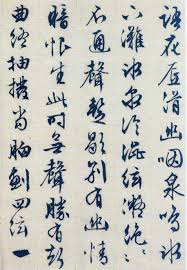 語花底滑幽咽泉鳴水
下灘冰泉冷澀絃凝絕〻
不通聲暫歇別有幽情
暗恨生此時無聲勝有聲
曲終抽撥當胸劃四絃一